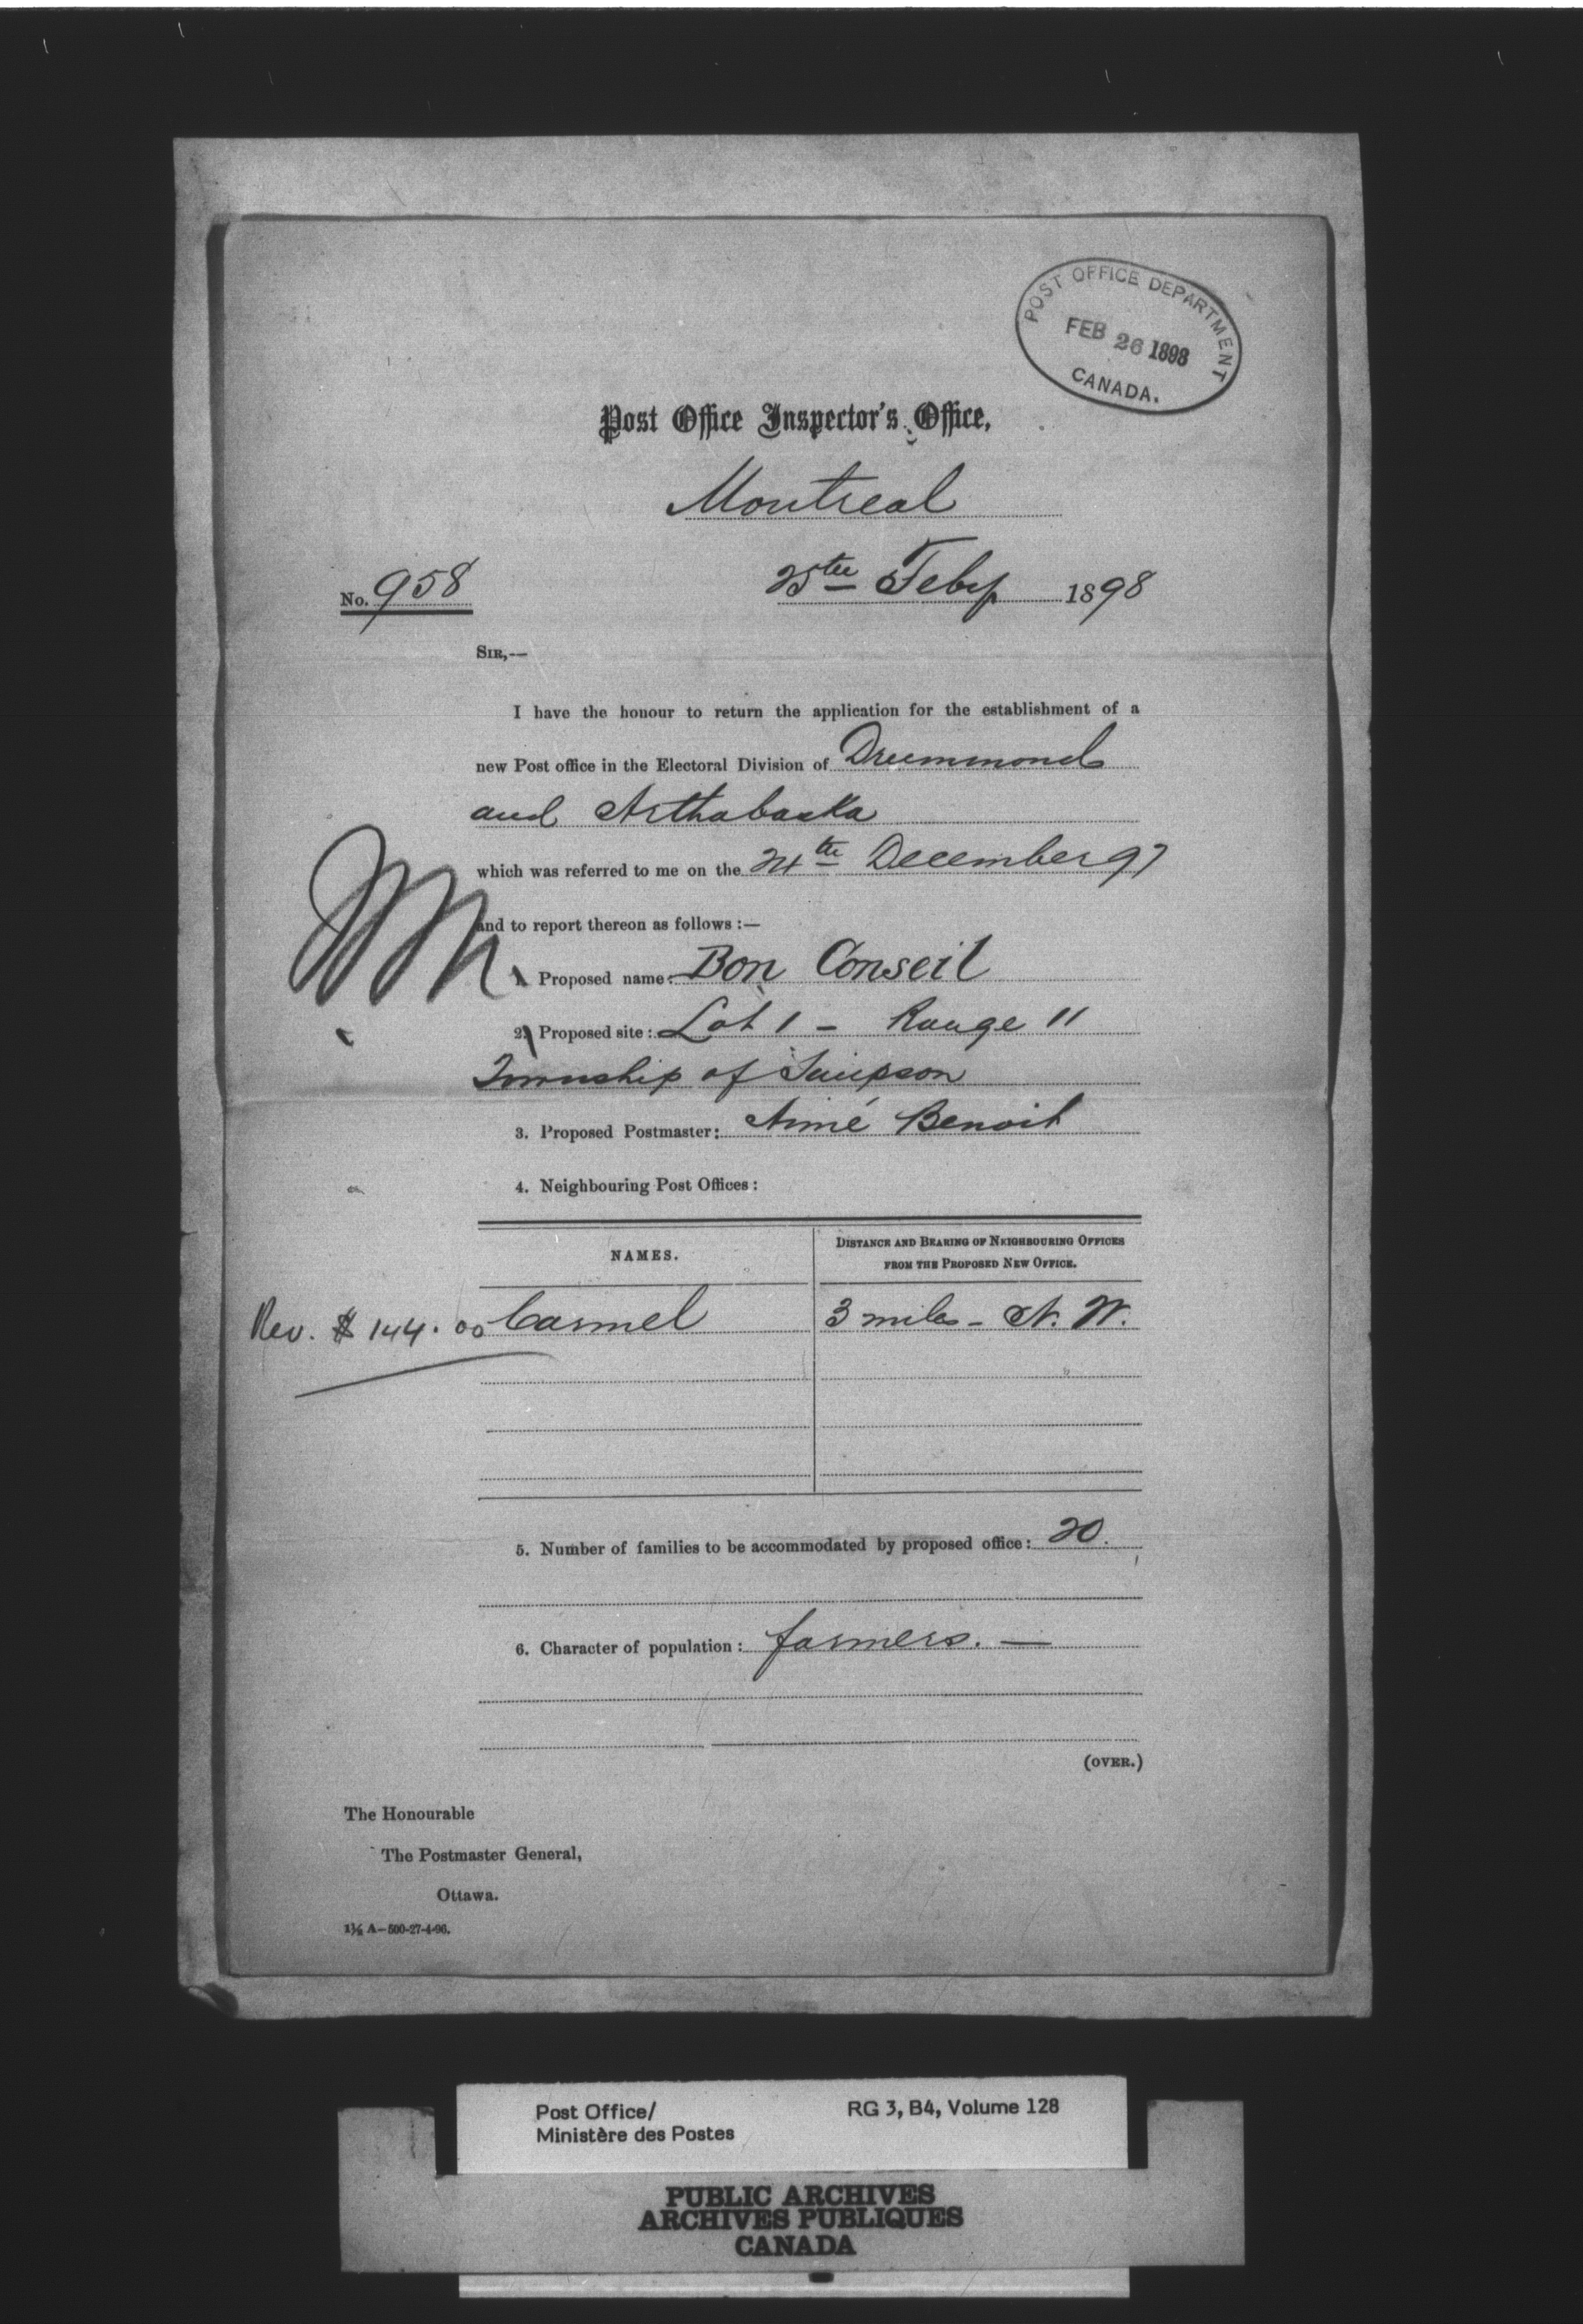 POST OFFICE DEPARTMENT
FEB 26 1898
CANADA.
Post Office Inspector's Office,
Montreal
No. 958
25th Feby 1898
SIR,—
I have the honour to return the application for the establishment of a
new Post office in the Electoral Division of Drummond
and Arthabaska
which was referred to me on the 24th December 97
and to report thereon as follows :—
1. Proposed name: Bon Conseil
2. Proposed site: Lot 1 - Range 11
Township of Simpson
3. Proposed Postmaster: Aimé Benoit
4. Neighbouring Post Offices:
NAMES.
DISTANCE AND BEARING OF NEIGHBOURING OFFICES
FROM THE PROPOSED NEW OFFICE.
Rev. $ 144.00 Carmel 3 miles - N. W.
5. Number of families to be accommodated by proposed office: 20.
6. Character of population: farmers. —
(OVER.)
The Honourable
The Postmaster General,
Ottawa.
1½ A—500-27-4-96.
Post Office/
Ministère des Postes
RG 3, B4, Volume 128
PUBLIC ARCHIVES
ARCHIVES PUBLIQUES
CANADA